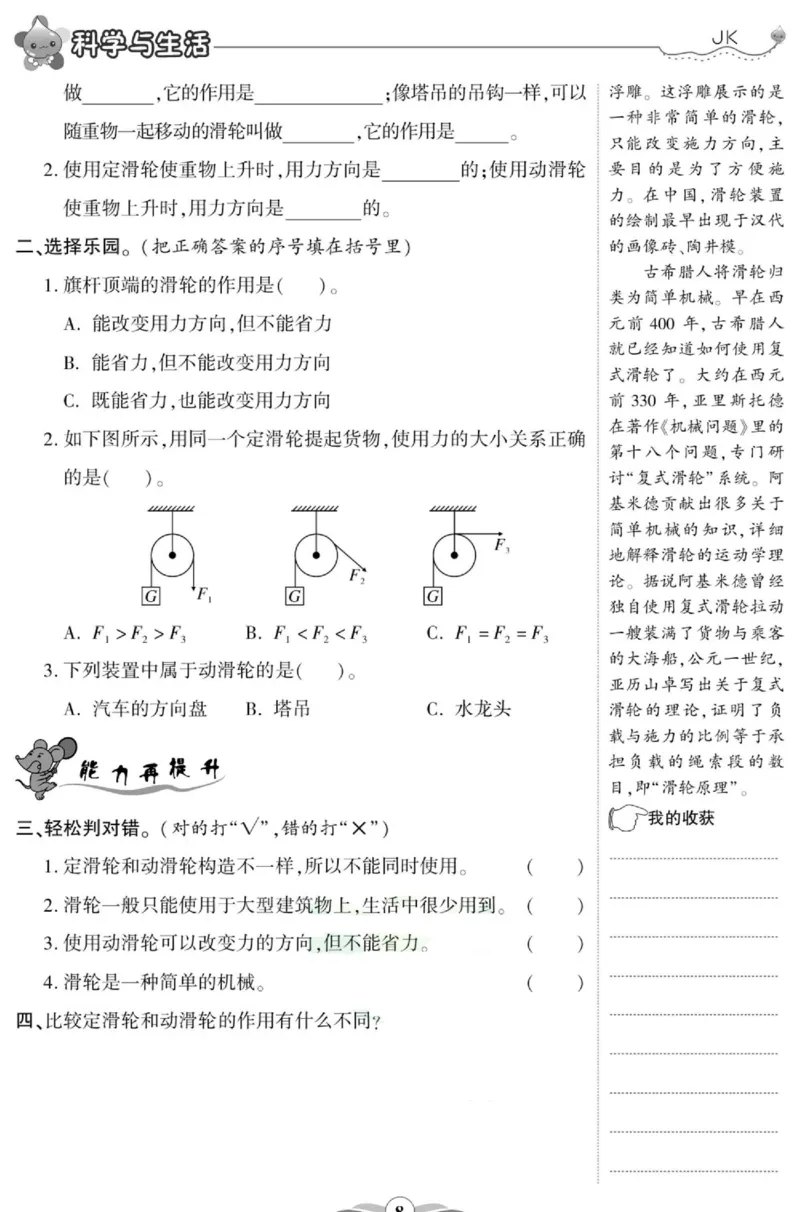 科学与生活
JK
做________,它的作用是______________;像塔吊的吊钩一样,可以
随重物一起移动的滑轮叫做________,它的作用是______。
2. 使用定滑轮使重物上升时,用力方向是________的;使用动滑轮
使重物上升时,用力方向是________的。
二、选择乐园。(把正确答案的序号填在括号里)
1. 旗杆顶端的滑轮的作用是(    )。
A. 能改变用力方向,但不能省力
B. 能省力,但不能改变用力方向
C. 既能省力,也能改变用力方向
2. 如下图所示,用同一个定滑轮提起货物,使用力的大小关系正确
的是(    )。
G F₁ G F₂ G F₃
A. F₁ > F₂ > F₃ B. F₁ < F₂ < F₃ C. F₁ = F₂ = F₃
3. 下列装置中属于动滑轮的是(    )。
A. 汽车的方向盘 B. 塔吊 C. 水龙头
能力再提升
三、轻松判对错。(对的打“√”,错的打“×”)
1. 定滑轮和动滑轮构造不一样,所以不能同时使用。 (    )
2. 滑轮一般只能使用于大型建筑物上,生活中很少用到。 (    )
3. 使用动滑轮可以改变力的方向,但不能省力。 (    )
4. 滑轮是一种简单的机械。 (    )
四、比较定滑轮和动滑轮的作用有什么不同?
浮雕。这浮雕展示的是
一种非常简单的滑轮,
只能改变施力方向,主
要目的是为了方便施
力。在中国,滑轮装置
的绘制最早出现于汉代
的画像砖、陶井模。
古希腊人将滑轮归
类为简单机械。早在西
元前 400 年,古希腊人
就已经知道如何使用复
式滑轮了。大约在西元
前 330 年,亚里斯托德
在著作《机械问题》里的
第十八个问题,专门研
讨“复式滑轮”系统。阿
基米德贡献出很多关于
简单机械的知识,详细
地解释滑轮的运动学理
论。据说阿基米德曾经
独自使用复式滑轮拉动
一艘装满了货物与乘客
的大海船,公元一世纪,
亚历山卓写出关于复式
滑轮的理论,证明了负
载与施力的比例等于承
担负载的绳索段的数
目,即“滑轮原理”。
我的收获
8